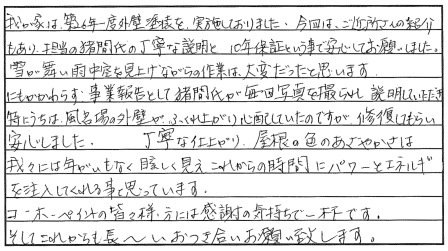 我が家は、第2.4年一度外壁塗装を、実施しておりました。今回は、ご近所さんの紹介
もあり、担当の猪間代の丁寧な説明と10年保証という事で安心してお願いしました。
雪が舞い雨中空を見上げながらの作業は、大変だったと思います
にもかかわらず、事業報告として猪間代が毎回写真を撮られ説明していただき
特にうちは、風呂場の外壁が、ふくれ上がり心配していたのですが、修復してもらい
安心しました。 丁寧な仕上がり、屋根の色のあざやかさは
我々には年がいもなく眩しく見えこれからの時間にパワーとエネルギ
を注入してくれる事と思っています。
ユーホーペイントの皆々様方には感謝の気持ちで一杯です。
そしてこれからも長〜いおつき合いお願い致します。